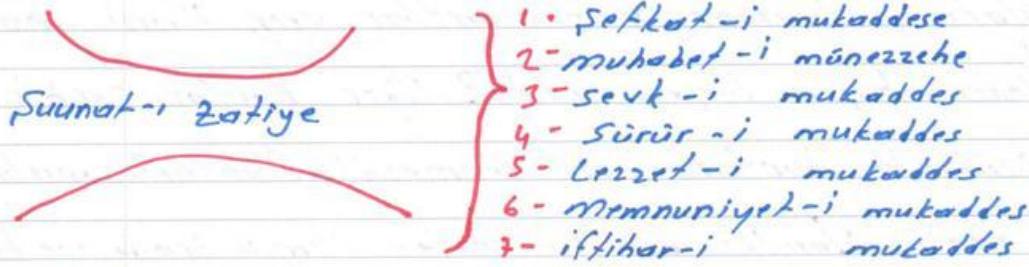 Şuunat-ı Zatiye
1- Şefkat-i mukaddese
2- muhabet-i münezzehe
3- Şevk-i mukaddes
4- Sürûr-i mukaddes
5- Lezzet-i mukaddes
6- Memnuniyet-i mukaddes
7- iftihar-i mukaddes